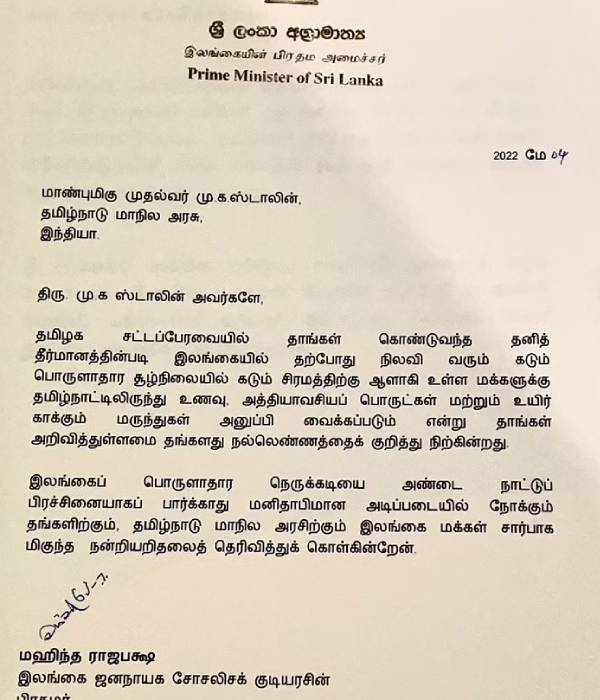 ශ්‍රී ලංකා අග්‍රාමාත්‍ය
இலங்கையின் பிரதம அமைச்சர்
Prime Minister of Sri Lanka
2022 மே 04
மாண்புமிகு முதல்வர் மு.க.ஸ்டாலின்,
தமிழ்நாடு மாநில அரசு,
இந்தியா.
திரு. மு.க ஸ்டாலின் அவர்களே,
தமிழக சட்டப்பேரவையில் தாங்கள் கொண்டுவந்த தனித்
தீர்மானத்தின்படி இலங்கையில் தற்போது நிலவி வரும் கடும்
பொருளாதார சூழ்நிலையில் கடும் சிரமத்திற்கு ஆளாகி உள்ள மக்களுக்கு
தமிழ்நாட்டிலிருந்து உணவு, அத்தியாவசியப் பொருட்கள் மற்றும் உயிர்
காக்கும் மருந்துகள் அனுப்பி வைக்கப்படும் என்று தாங்கள்
அறிவித்துள்ளமை தங்களது நல்லெண்ணத்தைக் குறித்து நிற்கின்றது.
இலங்கைப் பொருளாதார நெருக்கடியை அண்டை நாட்டுப்
பிரச்சினையாகப் பார்க்காது மனிதாபிமான அடிப்படையில் நோக்கும்
தங்களிற்கும், தமிழ்நாடு மாநில அரசிற்கும் இலங்கை மக்கள் சார்பாக
மிகுந்த நன்றியறிதலைத் தெரிவித்துக் கொள்கின்றேன்.
மஹிந்த ராஜபக்ஷ
இலங்கை ஜனநாயக சோசலிசக் குடியரசின்